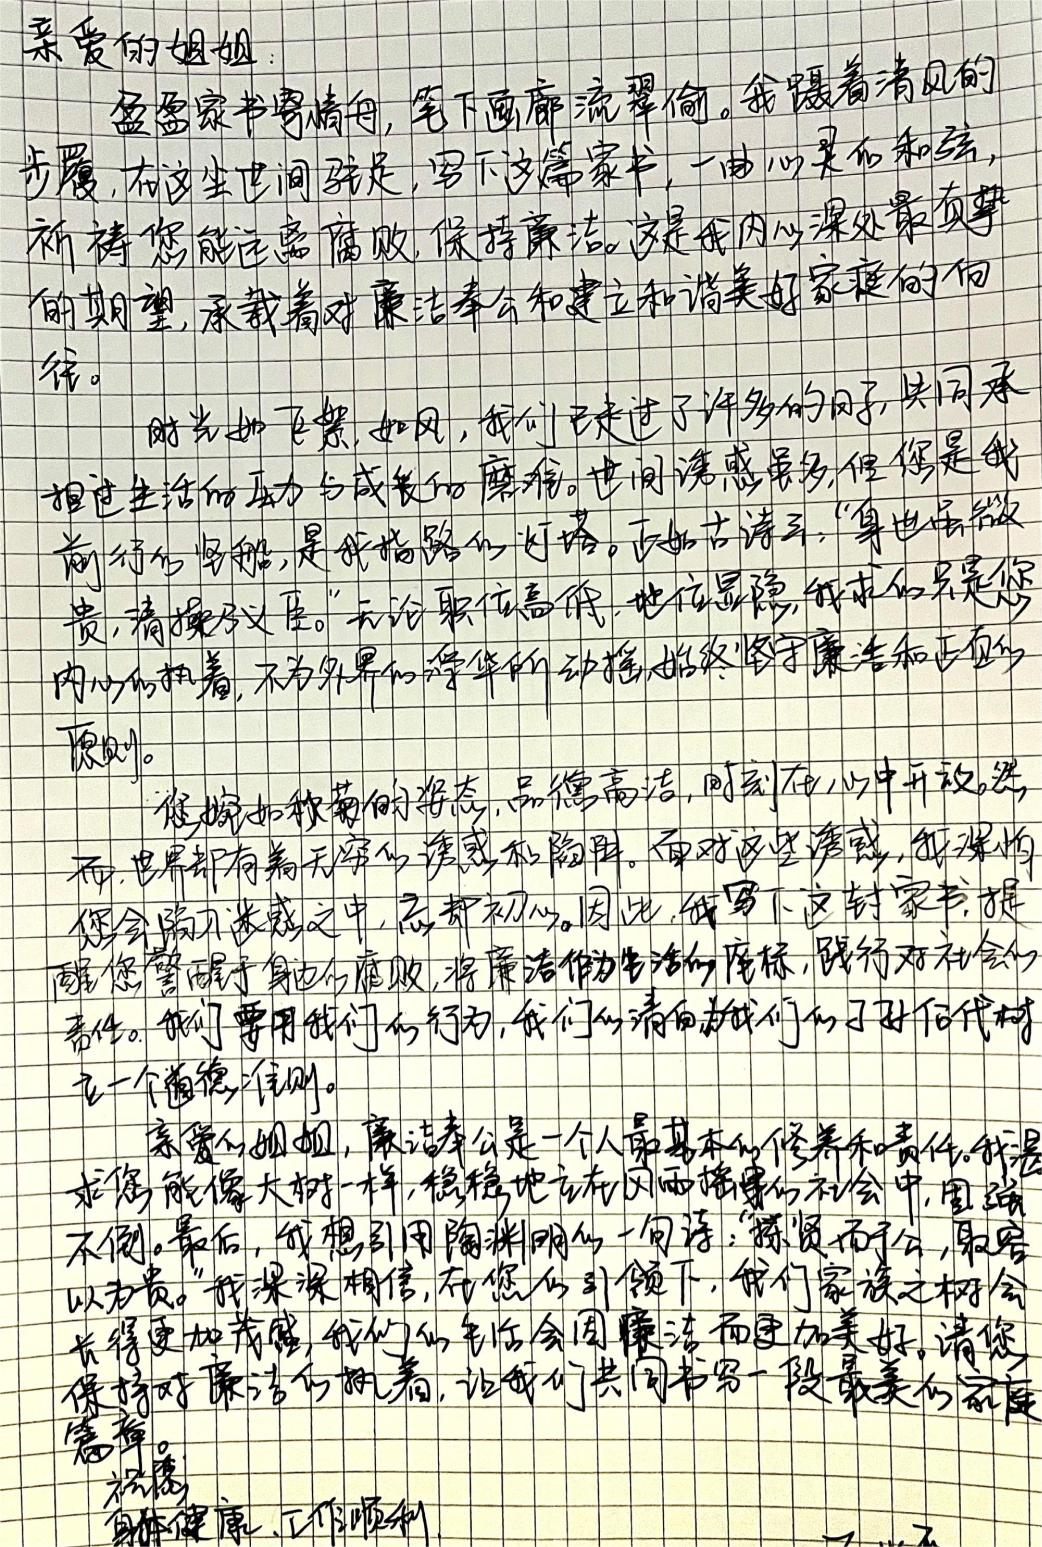 亲爱的姐姐:
盈盈家书寄情舟,笔下画廊流翠偷。我蹑着清风的
步履,在这尘世间驻足,写下这篇家书,一曲心灵的和弦,
祈祷您能远离腐败,保持廉洁。这是我内心深处最真挚
的期望,承载着对廉洁奉公和建立和谐美好家庭的向
往。
时光如飞絮,如风,我们已走过了许多的日子,共同承
担过生活的压力与成长的磨难。世间诱惑虽多,但您是我
前行的坚船,是我指路的灯塔。正如古诗云:“身也虽微
贵,清操乃义臣。”无论职位高低,地位显隐,我求的只是您
内心的执着,不为外界的浮华所动摇,始终坚守廉洁和正直的
原则。
您婉如秋菊的姿态,品德高洁,时刻在心中开放。然
而,世界却有着无穷的诱惑和陷阱。面对这些诱惑,我深怕
您会陷入迷惑之中,忘却初心。因此,我写下这封家书,提
醒您警醒于身边的腐败,将廉洁作为生活的座标,践行对社会的
责任。我们要用我们的行为,我们的清白为我们的子孙后代树
立一个道德准则。
亲爱的姐姐,廉洁奉公是一个人最基本的修养和责任。我恳
求您能像大树一样,稳稳地立在风雨摇曳的社会中,屹立
不倒。最后,我想引用陶渊明的一句诗:“择贤而予公,取容
以为贵。”我深深相信,在您的引领下,我们家族之树会
长得更加茂盛,我们的生活会因廉洁而更加美好。请您
保持对廉洁的执着,让我们共同书写一段最美的家庭
篇章。
祝愿
身体健康、工作顺利